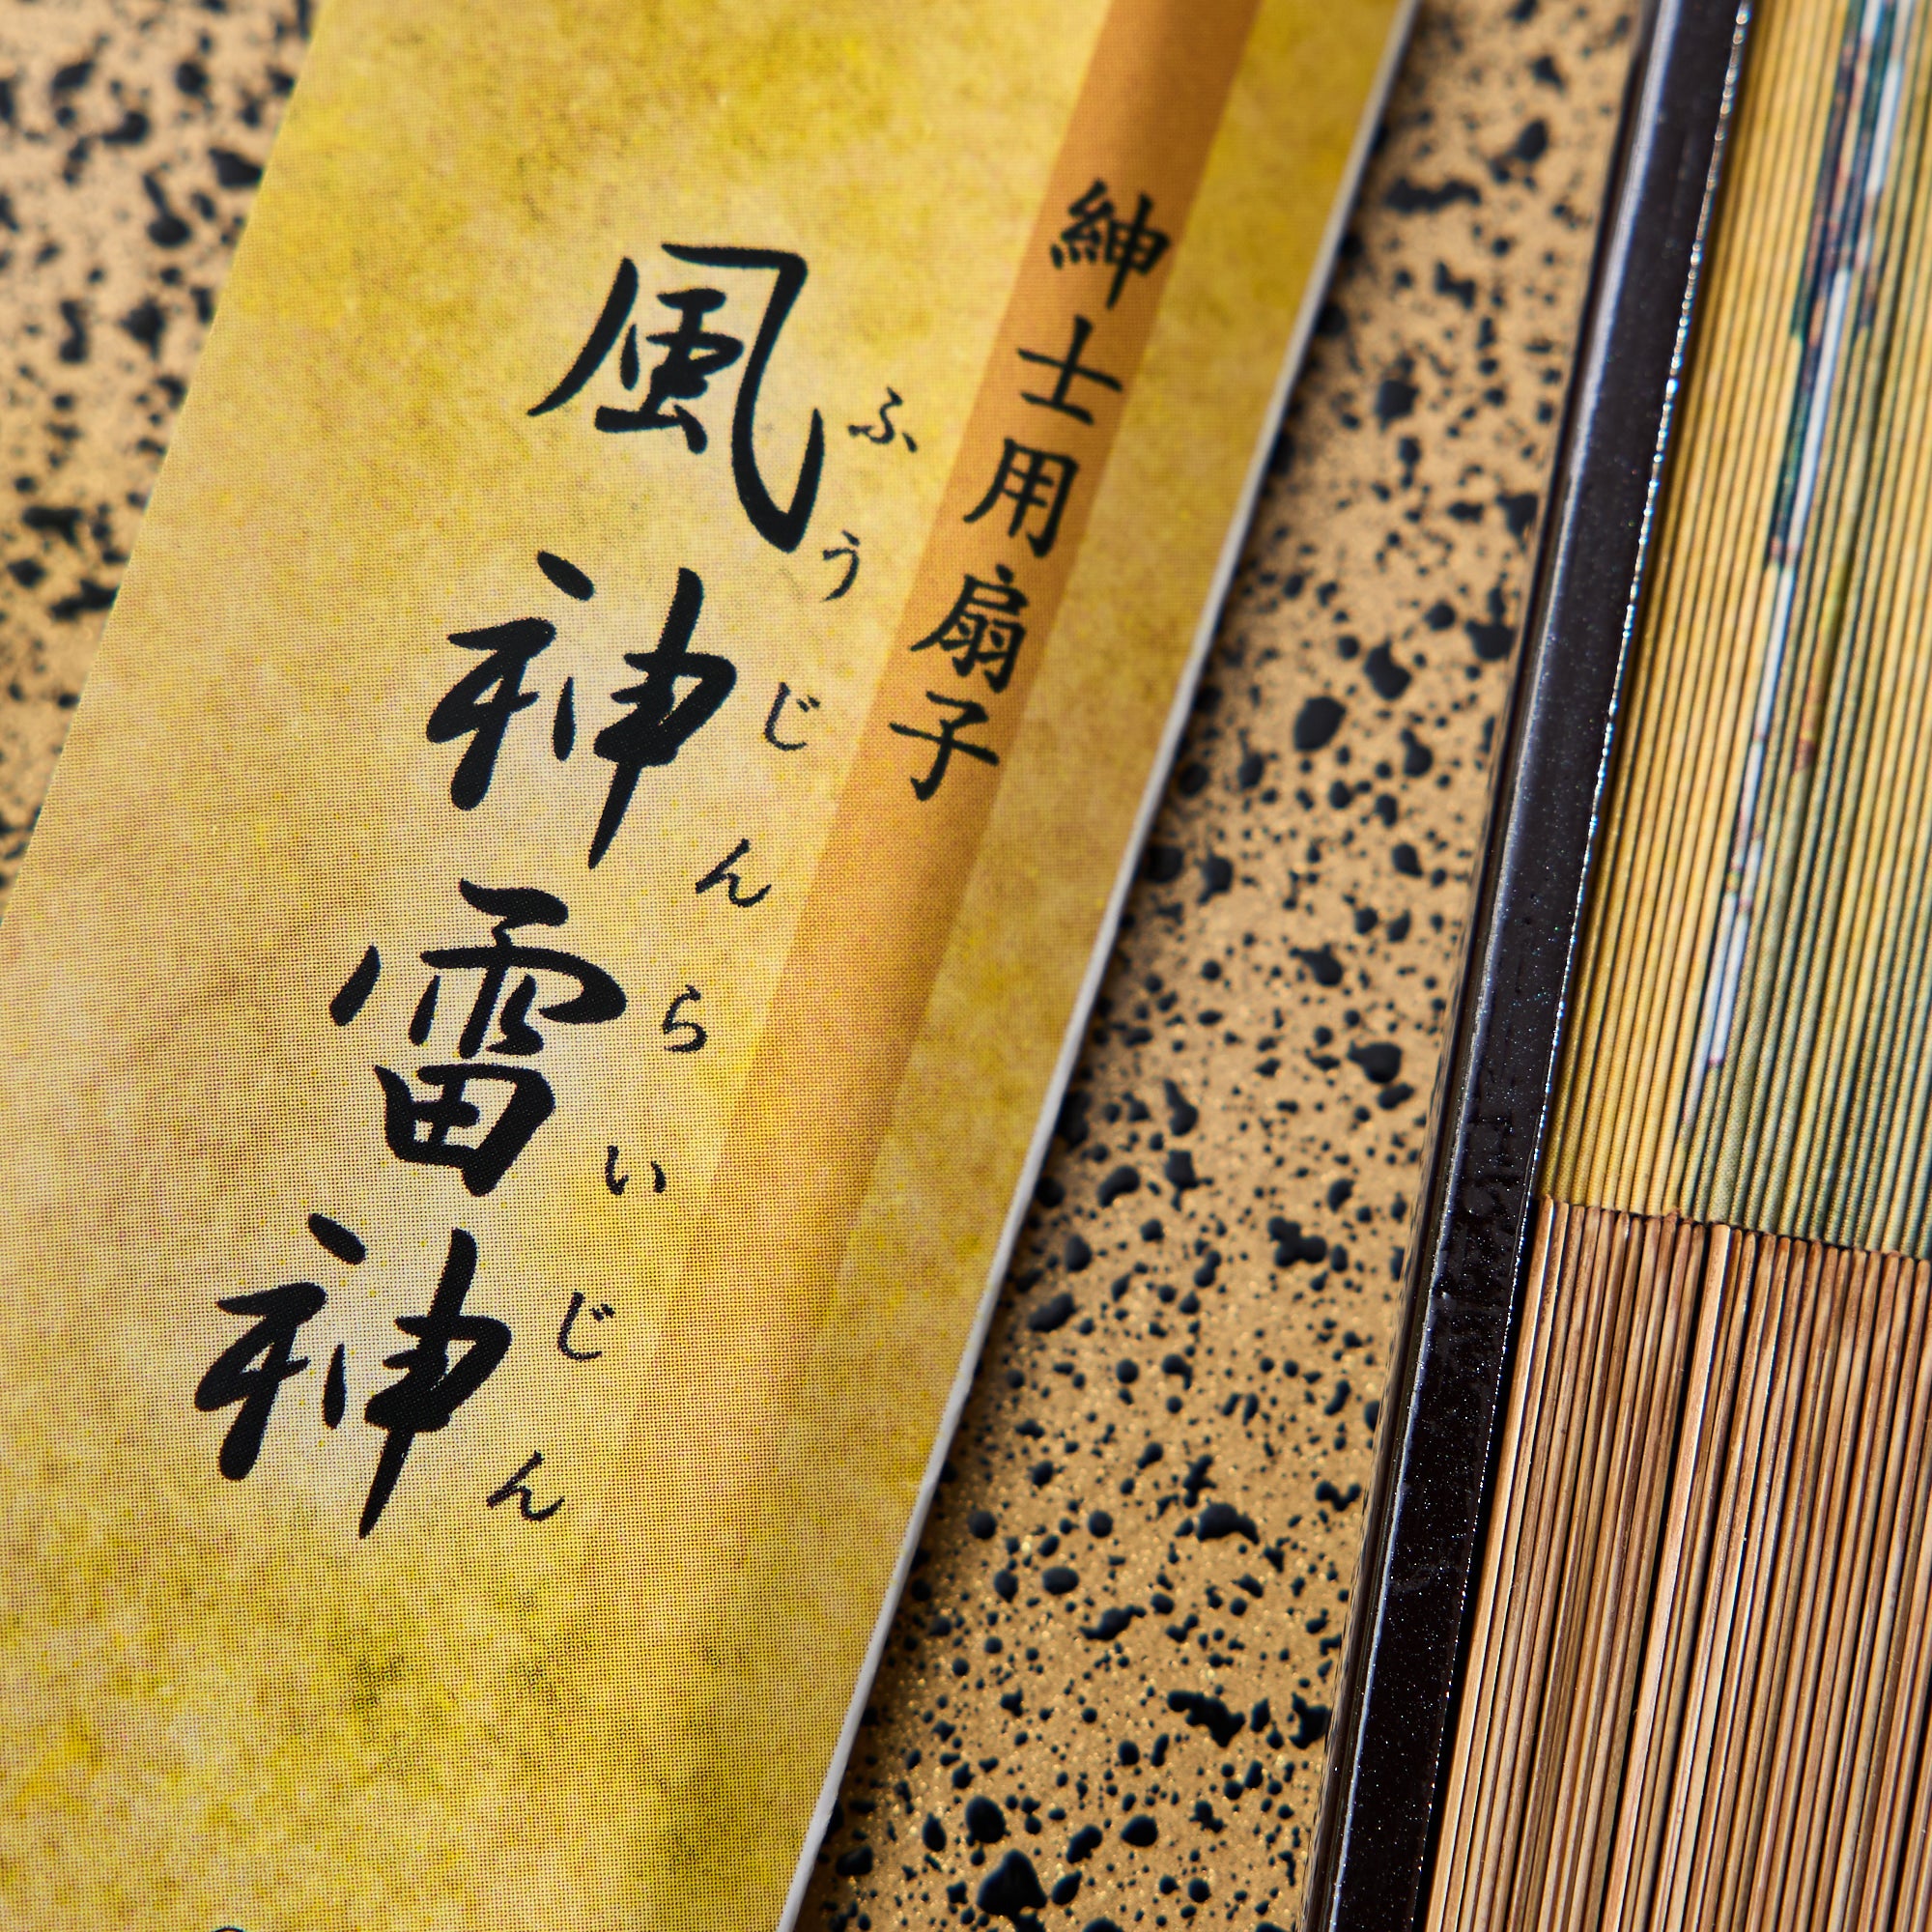 紳士用扇子
ふうじんらいじん
風神雷神